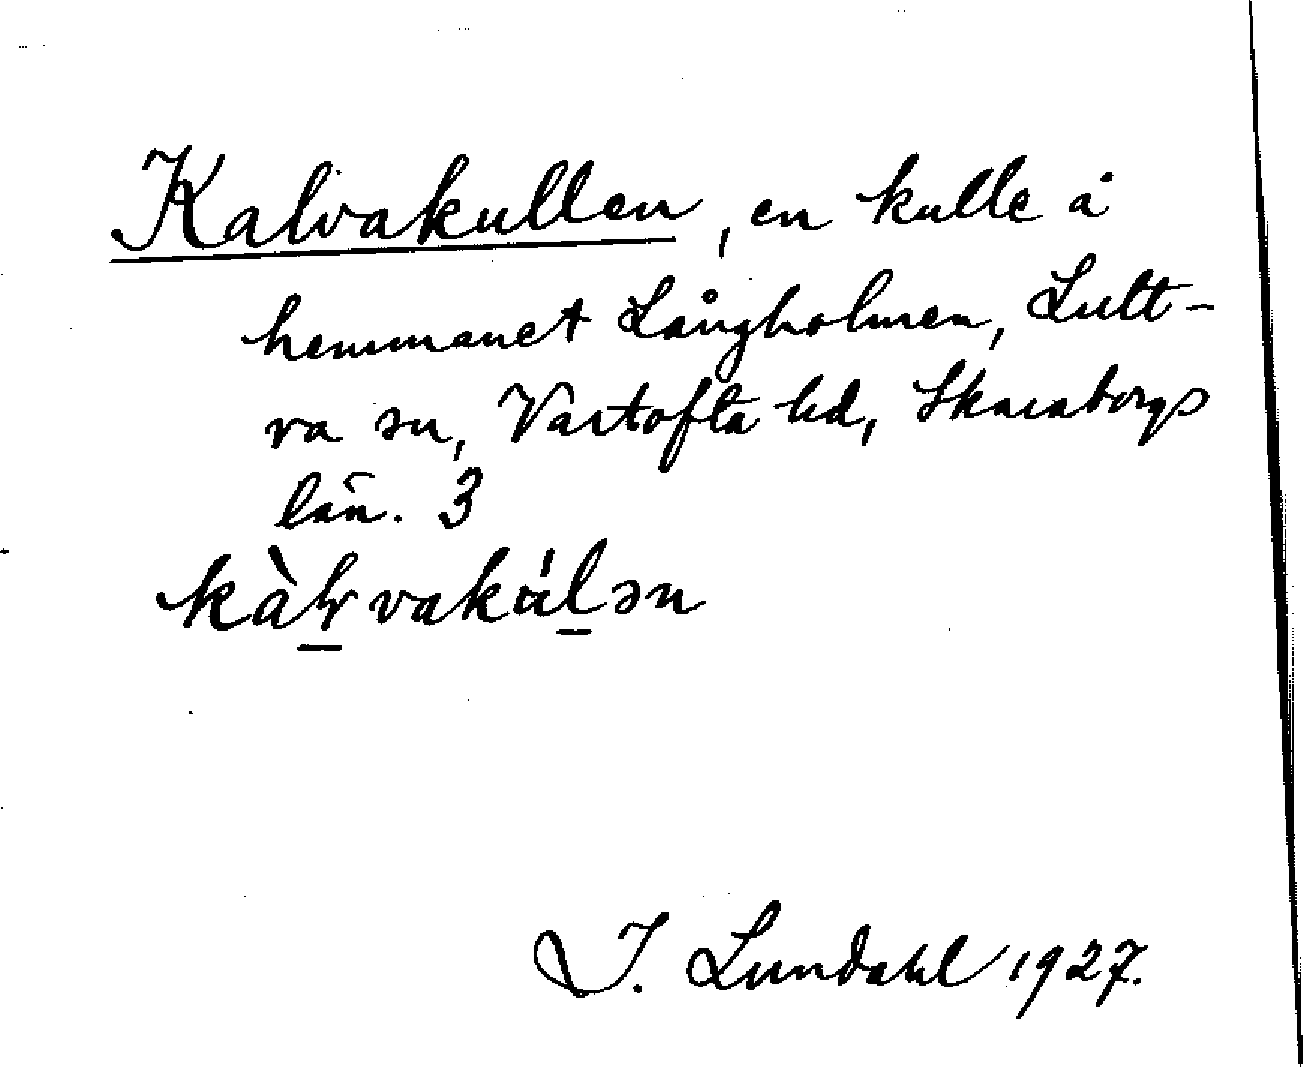 Kalvakullen, en kulle å
hemmanet Långholmen, Lutt-
ra sn, Vartofta hd, Skaraborgs
län. 3
I. Lundahl 1927.